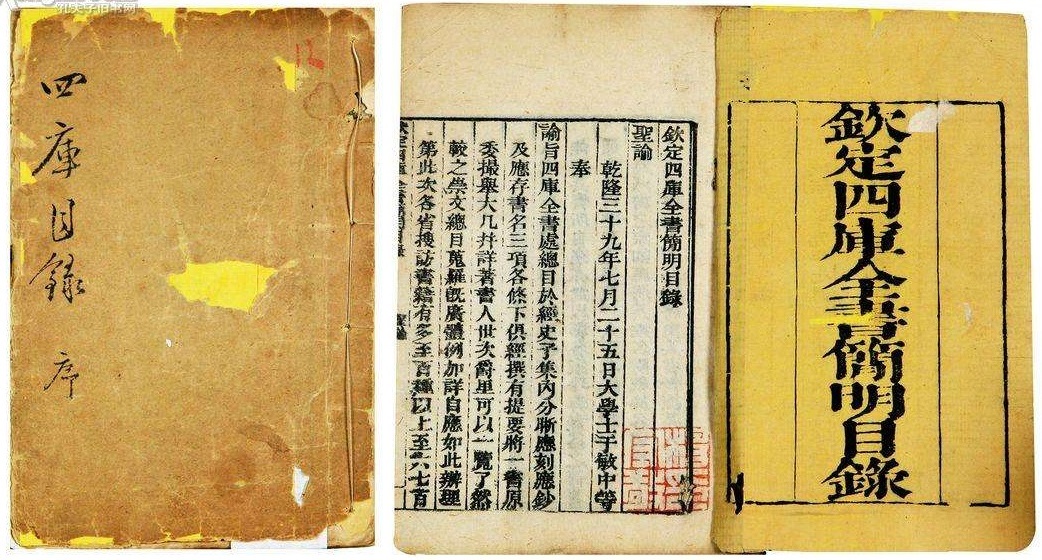 孔夫子旧书网
四庫目録
序
12
欽定四庫全書簡明目錄
欽定四庫全書簡明目錄
聖諭
乾隆三十九年七月二十五日大學士于敏中等
奉
諭旨四庫全書處總目於經史子集內分晰應刻應鈔
及應存書名三項各條下俱經撰有提要將一書原
委撮舉大凡并詳著書人世次爵里可以一覽了然
較之崇文總目蒐羅旣廣體例加詳自應如此辦理
第此次各省搜訪書籍有多至百種以上至六七百